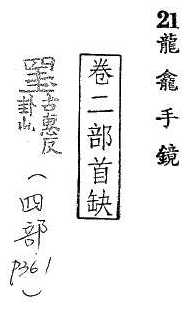 21龍龕手鏡
卷二部首缺
罣古惠反
卦山
(四部
p361)